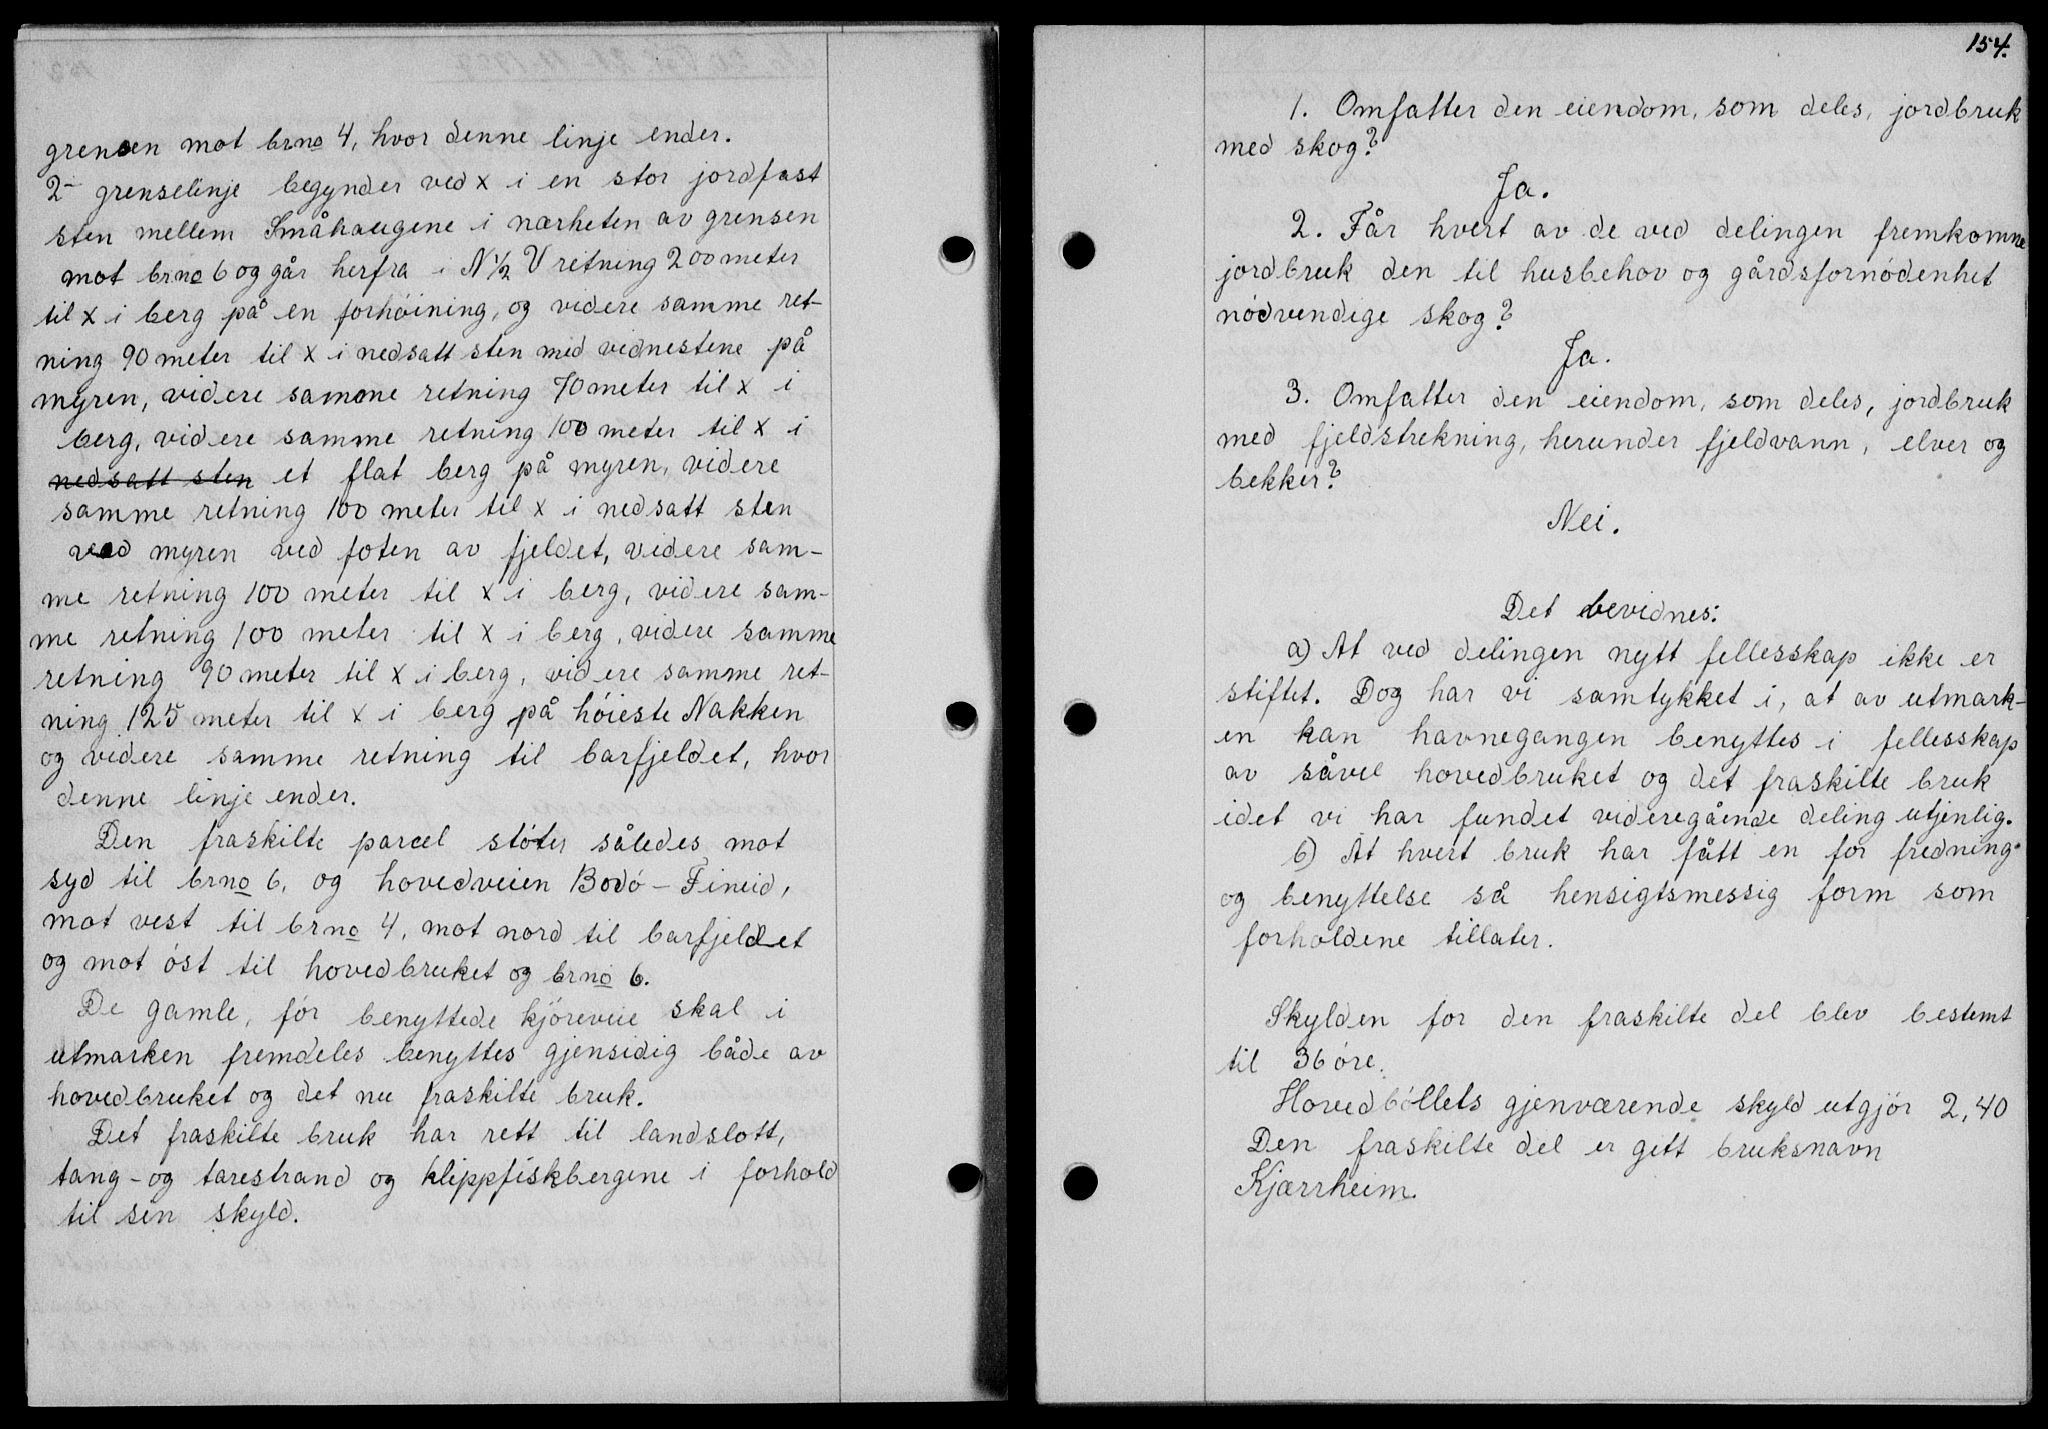 grensen mot brno 4, hvor denne linje ender.
2- grenselinje begynder ved x i en stor jordfast
sten mellem Småhaugene i nærheten av grensen
mot brno 6 og går herfra i N ½ V retning 200 meter
til x i berg på en forhöining, og videre samme ret-
ning 90 meter til x i nedsatt sten med vidnestene på
myren, videre samme retning 70 meter til x i
berg, videre samme retning 100 meter til x i
nedsatt sten et flat berg på myren, videre
samme retning 100 meter til x i nedsatt sten
ved myren ved foten av fjeldet, videre sam-
me retning 100 meter til x i berg, videre sam-
me retning 100 meter til x i berg, videre samme
retning 90 meter til x i berg, videre samme ret-
ning 125 meter til x i berg på höieste Nakken
og videre samme retning til barfjeldet, hvor
denne linje ender.
Den fraskilte parcel stöter således mot
syd til brno 6, og hovedveien Bodö - Fineid,
mot vest til brno 4, mot nord til barfjeldet
og mot öst til hovedbruket og brno 6.
De gamle, för benyttede kjöreveie skal i
utmarken fremdeles benyttes gjensidig både av
hovedbruket og det nu fraskilte bruk.
Det fraskilte bruk har rett til landslott,
tang- og tarestrand og klippfiskbergene i forhold
til sin skyld.
154.
1. Omfatter den eiendom, som deles, jordbruk
med skog?
Ja.
2. Får hvert av de ved delingen fremkomne
jordbruk den til husbehov og gårdsfornödenhet
nödvendige skog?
Ja.
3. Omfatter den eiendom, som deles, jordbruk
med fjeldstrekning, herunder fjeldvann, elver og
bekker?
Nei.
Det bevidnes:
a) At ved delingen nytt fellesskap ikke er
stiftet. Dog har vi samtykket i, at av utmark-
en kan havnegangen benyttes i fellesskap
av såvel hovedbruket og det fraskilte bruk
idet vi har fundet videregående deling utjenlig.
b) At hvert bruk har fått en for fredning
og benyttelse så hensigtsmessig form som
forholdene tillater.
Skylden for den fraskilte del blev bestemt
til 36 öre.
Hovedböllets gjenværende skyld utgjör 2,40
Den fraskilte del er gitt bruksnavn
Kjærrheim.